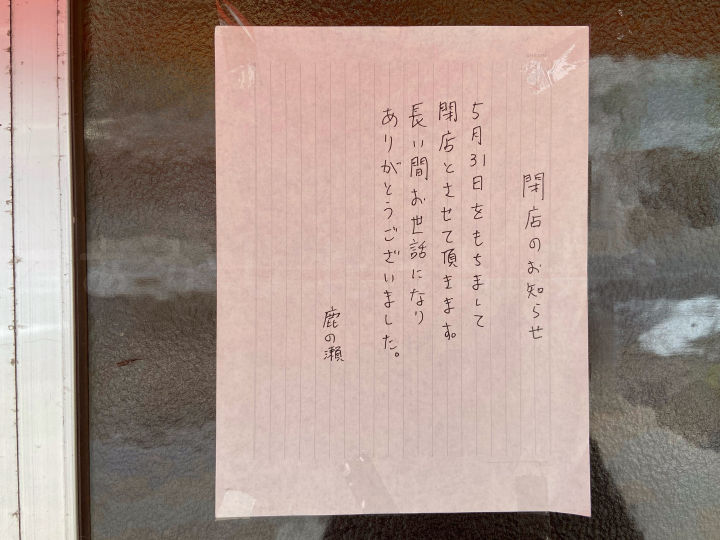 閉店のお知らせ
5月31日をもちまして
閉店とさせて頂きます。
長い間お世話になり
ありがとうございました。
鹿の瀬